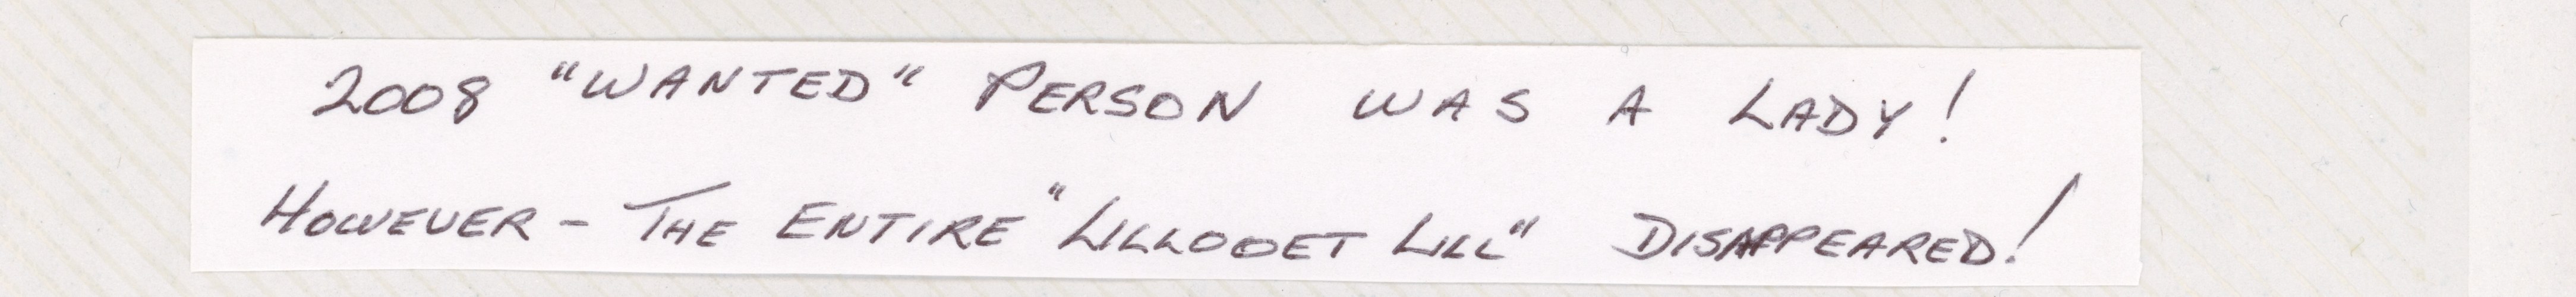 2008 "WANTED" PERSON WAS A LADY!
HOWEVER - THE ENTIRE "LILLOOET LILL" DISAPPEARED!